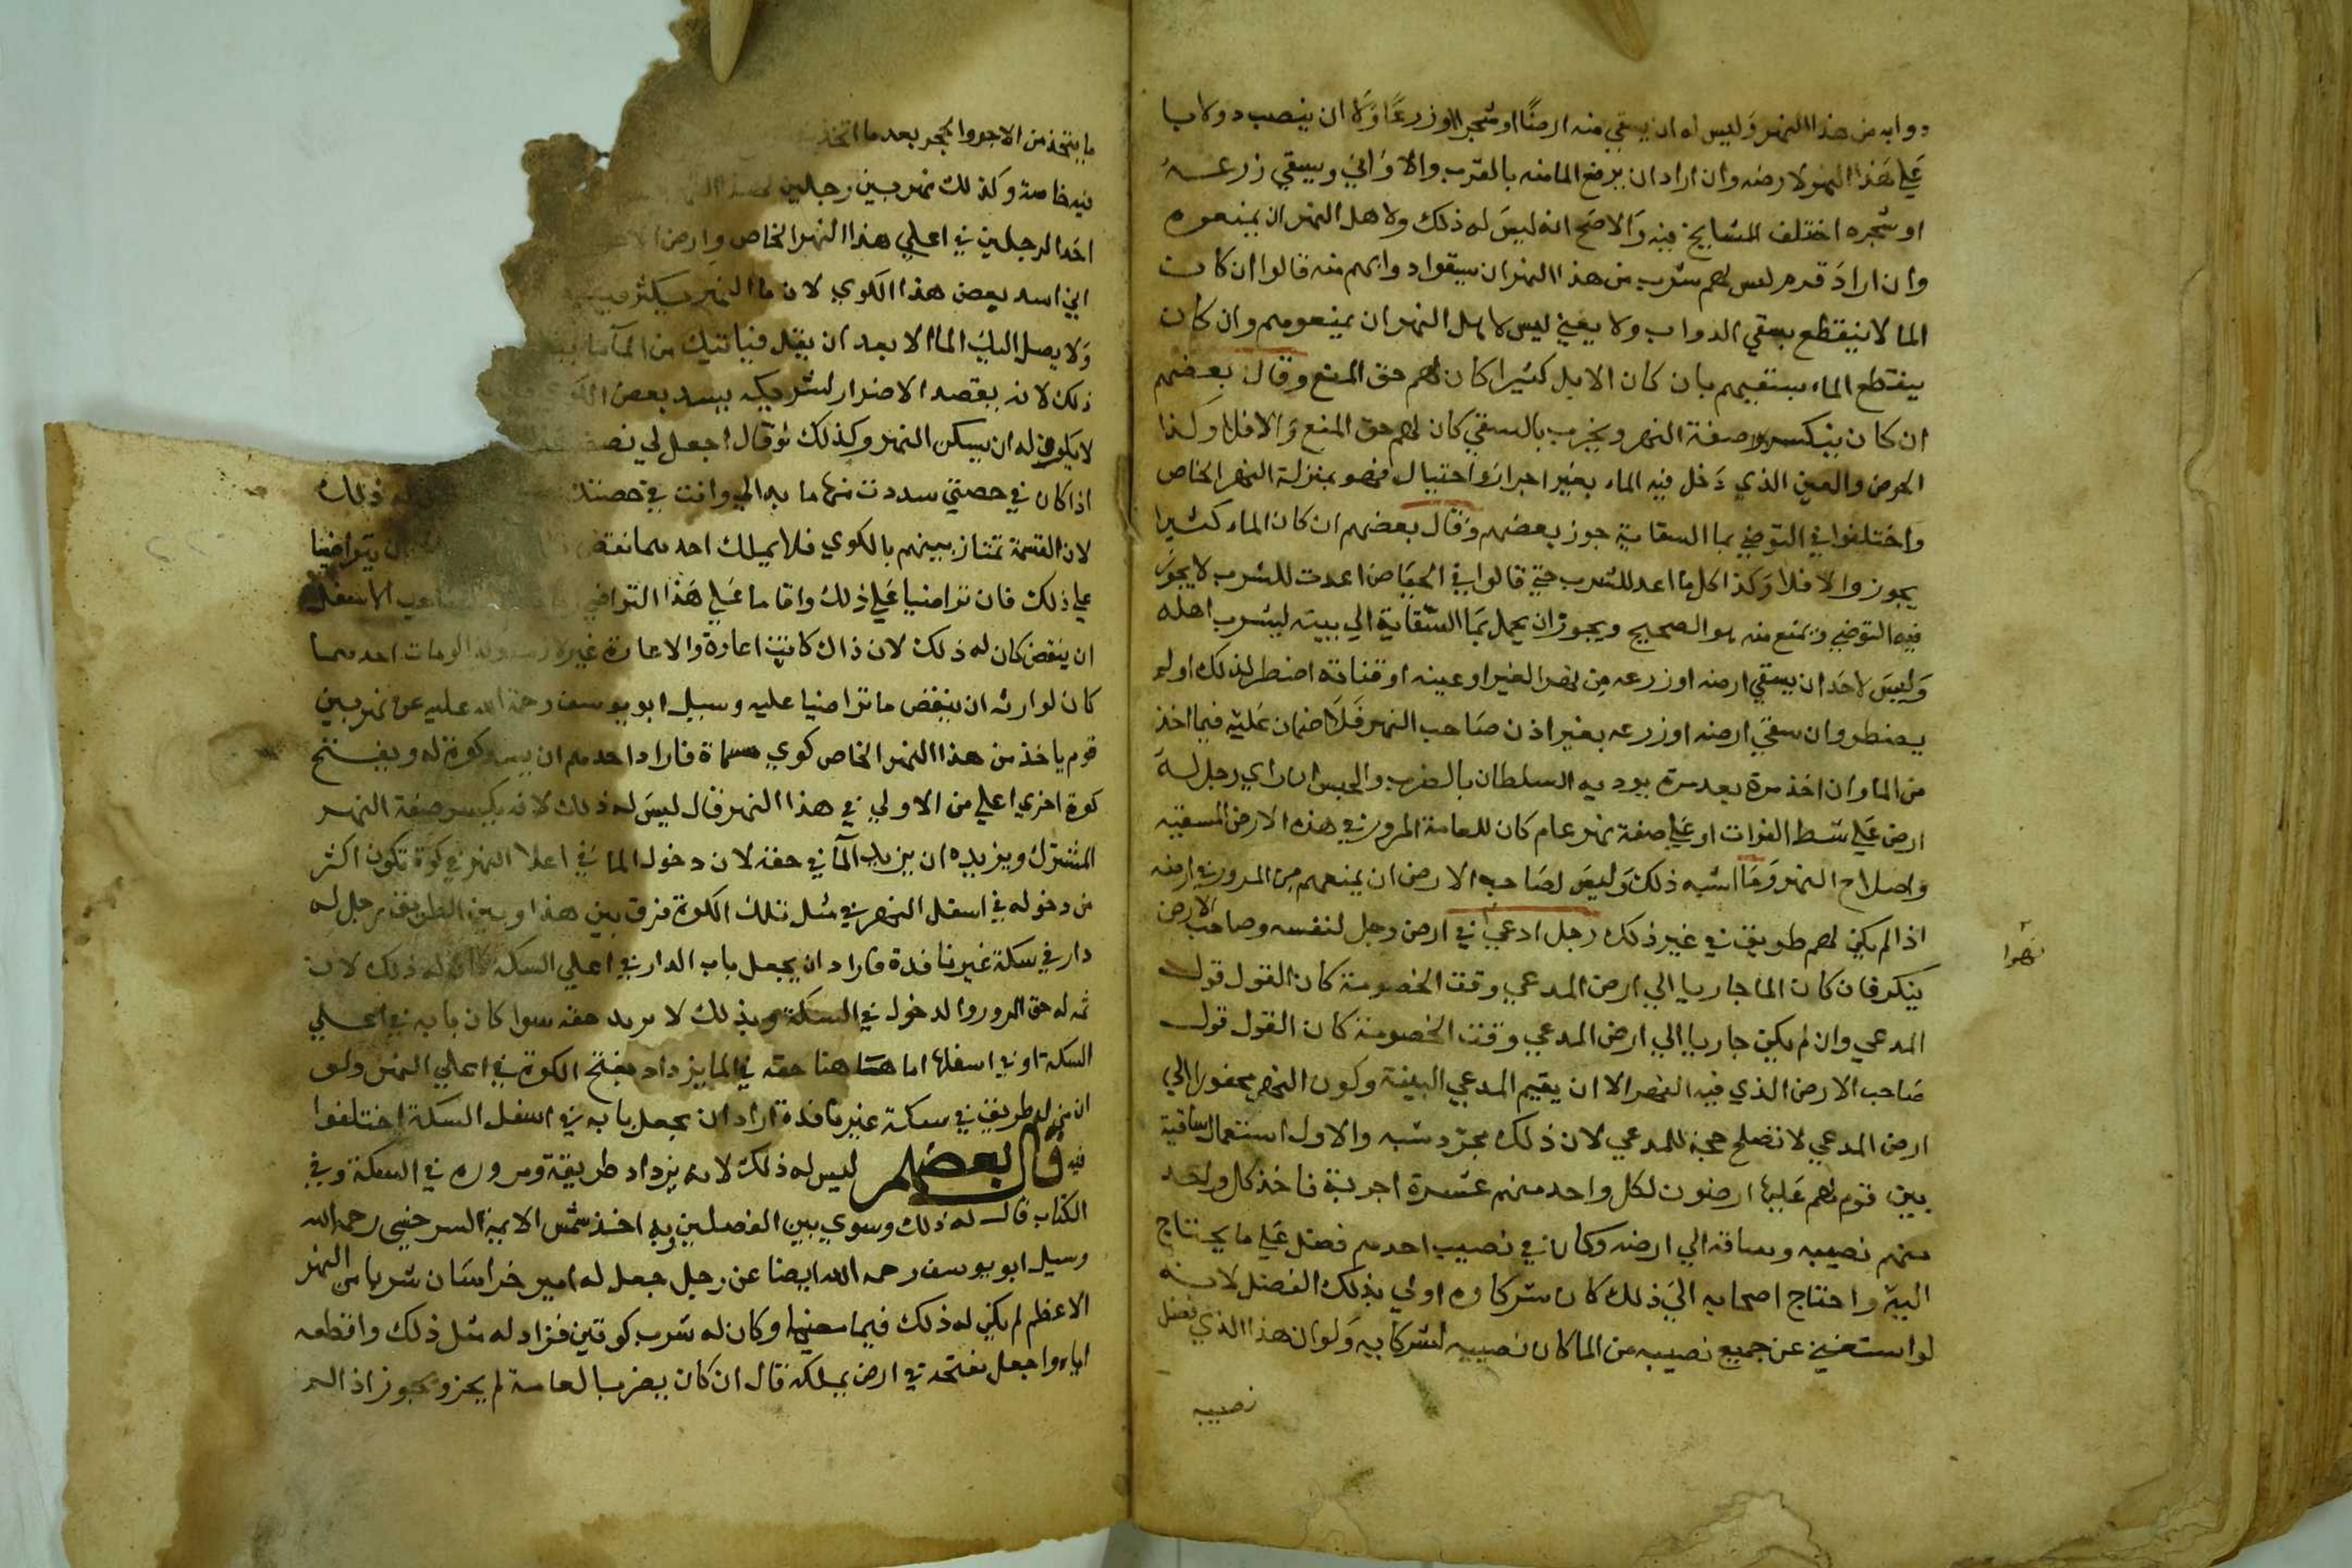 دوابه من هذا النهر وليس له ان يسقي منه ارضًا او شجرا او زرعًا ولا ان ينصب دولابا
علي هذا النهر لارضه وان اراد ان يرفع الما منه بالقرب والاواني ويسقي زرعه
او شجره اختلف المشايخ فيه والاصح انه ليس له ذلك ولاهل النهر ان يمنعوه
وان اراد قوم ليس لهم شرب من هذا النهر ان يسقوا دوابهم منه قالوا ان كان
الما لا ينقطع بسقي الدواب ولا يفني ليس لاهل النهر ان يمنعوهم وان كان
ينقطع الماء بسقيهم بان كان الابل كثيرا كان لهم حق المنع وقال بعضهم
ان كان ينكسر صفة النهر ويخرب بالسقي كان لهم حق المنع والا فلا وكذا
العين الذي دخل فيه الماء بغير احتيال فهو بمنزلة النهر الخاص
واختلفوا في التوضي بما السقاية جوز بعضهم وقال بعضهم ان كان الماء كثيرا
يجوز والا فلا وكذا كل ما اعد للشرب حتي قالوا في الحياض اعدت للشرب لا يجوز
فيه التوضي ويمنع منه هو الصحيح ويجوز ان يحمل بما السقاية الي بيته ليشرب اهله
وليس لاحد ان يسقي ارضه او زرعه من نهر الغير او عينه او قناته اضطر لذلك او لم
يضطر وان سقي ارضه او زرعه بغير اذن صاحب النهر فلا ضمان عليه فيما اخذ
من الما وان اخذ مرة بعد مرة يوديه السلطان بالضرب والحبس ان راي رجل له
ارض علي شط الفرات او علي صفة نهر عام كان للعامة المرور في هذه الارض المسقيه
واصلاح النهر وما اشبه ذلك وليس لصاحب الارض ان يمنعهم من المرور في ارضه
اذا لم يكن لهم طريق في غير ذلك رجل ادعي في ارض رجل لنفسه وصاحب الارض
نهرا
ينكر فان كان الما جاريا الي ارض المدعي وقت الخصومة كان القول قول
المدعي وان لم يكن جاريا الي ارض المدعي وقت الخصومة كان القول قول
صاحب الارض الذي فيه النهر الا ان يقيم المدعي البينة وكون النهر محفورا الي
ارض المدعي لا تصلح حجة للمدعي لان ذلك مجرد شبه والاول استعمال ساقية
بين قوم لهم عليها ارضون لكل واحد منهم عشرة اجربة فاخذ كل واحد
منهم نصيبه وساقه الي ارضه وكان في نصيب احدهم فضل علي ما يحتاج
اليه واحتاج اصحابه الي ذلك كان شركاوه اولي بذلك الفضل لانه
لو استغني عن جميع نصيبه من الما كان نصيبه لشركايه ولو ان هذا الذي فضل
نصيبه
ما يتخذ من الاجر والحجر بعد ما اتخذ
فيه خاصة وكذلك نهر بين رجلين
احد الرجلين في اعلي هذا النهر الخاص وارض
اني اسد بعض هذا الكوي لان ما النهر يكثر
ولا يصل اليك الما الا بعد ان يقل فياتيك من المآ
ذلك لانه يقصد الاضرار لشريكه بسد بعض
لا يكون له ان يسكن النهر وكذلك لو قال اجعل لي نصف
اذا كان في حصتي سددت منها ما بدا لي وانت في حصتك ذلك
لان القسمة تمتاز بينهم بالكوي فلا يملك احدهما نقض ان يتراضيا
علي ذلك فان تراضيا علي ذلك واقاما علي هذا التراضي الاسفل
ان ينقض كان له ذلك لان ذاك كانت اعارة والاعارة غير لازمة مات احدهما
كان لوارثه ان ينقض ما تراضيا عليه وسيل ابو يوسف رحمة الله عليه عن نهر بين
قوم ياخذ من هذا النهر الخاص كوي مسماة فاراد احدهم ان يسد كوة له ويفتح
كوة اخري اعلي من الاولي في هذا النهر قال ليس له ذلك لانه يكسر صفة النهر
المشترك ويريد ان يزيد المآ في حقه لان دخول الما في اعلا النهر في كوة تكون اكثر
من دخوله في اسفل النهر في مثل تلك الكوة فرق بين هذا وبين الطريق رجل له
دار في سكة غير نافذة فاراد ان يجعل باب الدار في اعلي السكة كان له ذلك لان
ثمه له حق المرور والدخول في السكة وبذلك لا يزيد حقه سوا كان بابه في اعلي
السكة او في اسفلها اما هنا حقه في الما يزداد بفتح الكوة في اعلي النهر ولو
ان من له طريق في سكة غير نافذة اراد ان يجعل بابه في اسفل السكة اختلفوا
فيه قال بعضهم ليس له ذلك لانه يزداد طريقه ومروره في السكة وفي
الكتاب قال له ذلك وسوي بين الفصلين وبه اخذ شمس الايمة السرخسي رحمه الله
وسيل ابو يوسف رحمه الله ايضا عن رجل جعل له امير خراسان شربا من النهر
الاعظم لم يكن له ذلك فيما مضي وكان له شرب كوتين فزاد له مثل ذلك واقطعه
اياه واجعل مفتحه في ارض يملكه قال ان كان يضر بالعامة لم يجز ويجوز اذا لم